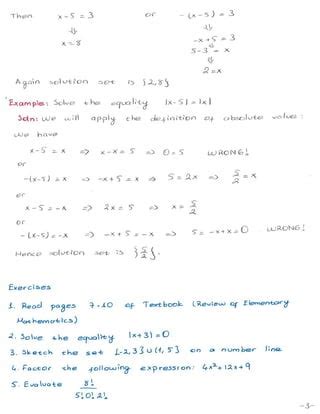 Then x-5 = 3 or -(x-5) = 3
⇓ ⇓
x = 8 -x+5 = 3
5-3 = x
⇓
2 = x
Again solution set is {2,8}
Example: Solve the equality |x-5| = |x|
Soln: We will apply the definition of absolute value:
We have
x-5 = x ⇒ x-x = 5 ⇒ 0 = 5 WRONG!
or
-(x-5) = x ⇒ -x+5 = x ⇒ 5 = 2x ⇒ 5/2 = x
or
x-5 = -x ⇒ 2x = 5 ⇒ x = 5/2
or
-(x-5) = -x ⇒ -x+5 = -x ⇒ 5 = -x+x = 0 WRONG!
Hence solution set is {5/2}.
Exercises
1. Read pages 7-10 of Textbook (Review of Elementary
Mathematics)
2. Solve the equality |x+3| = 0
3. Sketch the set [-2,3] ∪ (1,5] on a number line
4. Factor the following expression: 4x²+12x+9
5. Evaluate 8!/5!0!2!
-3-